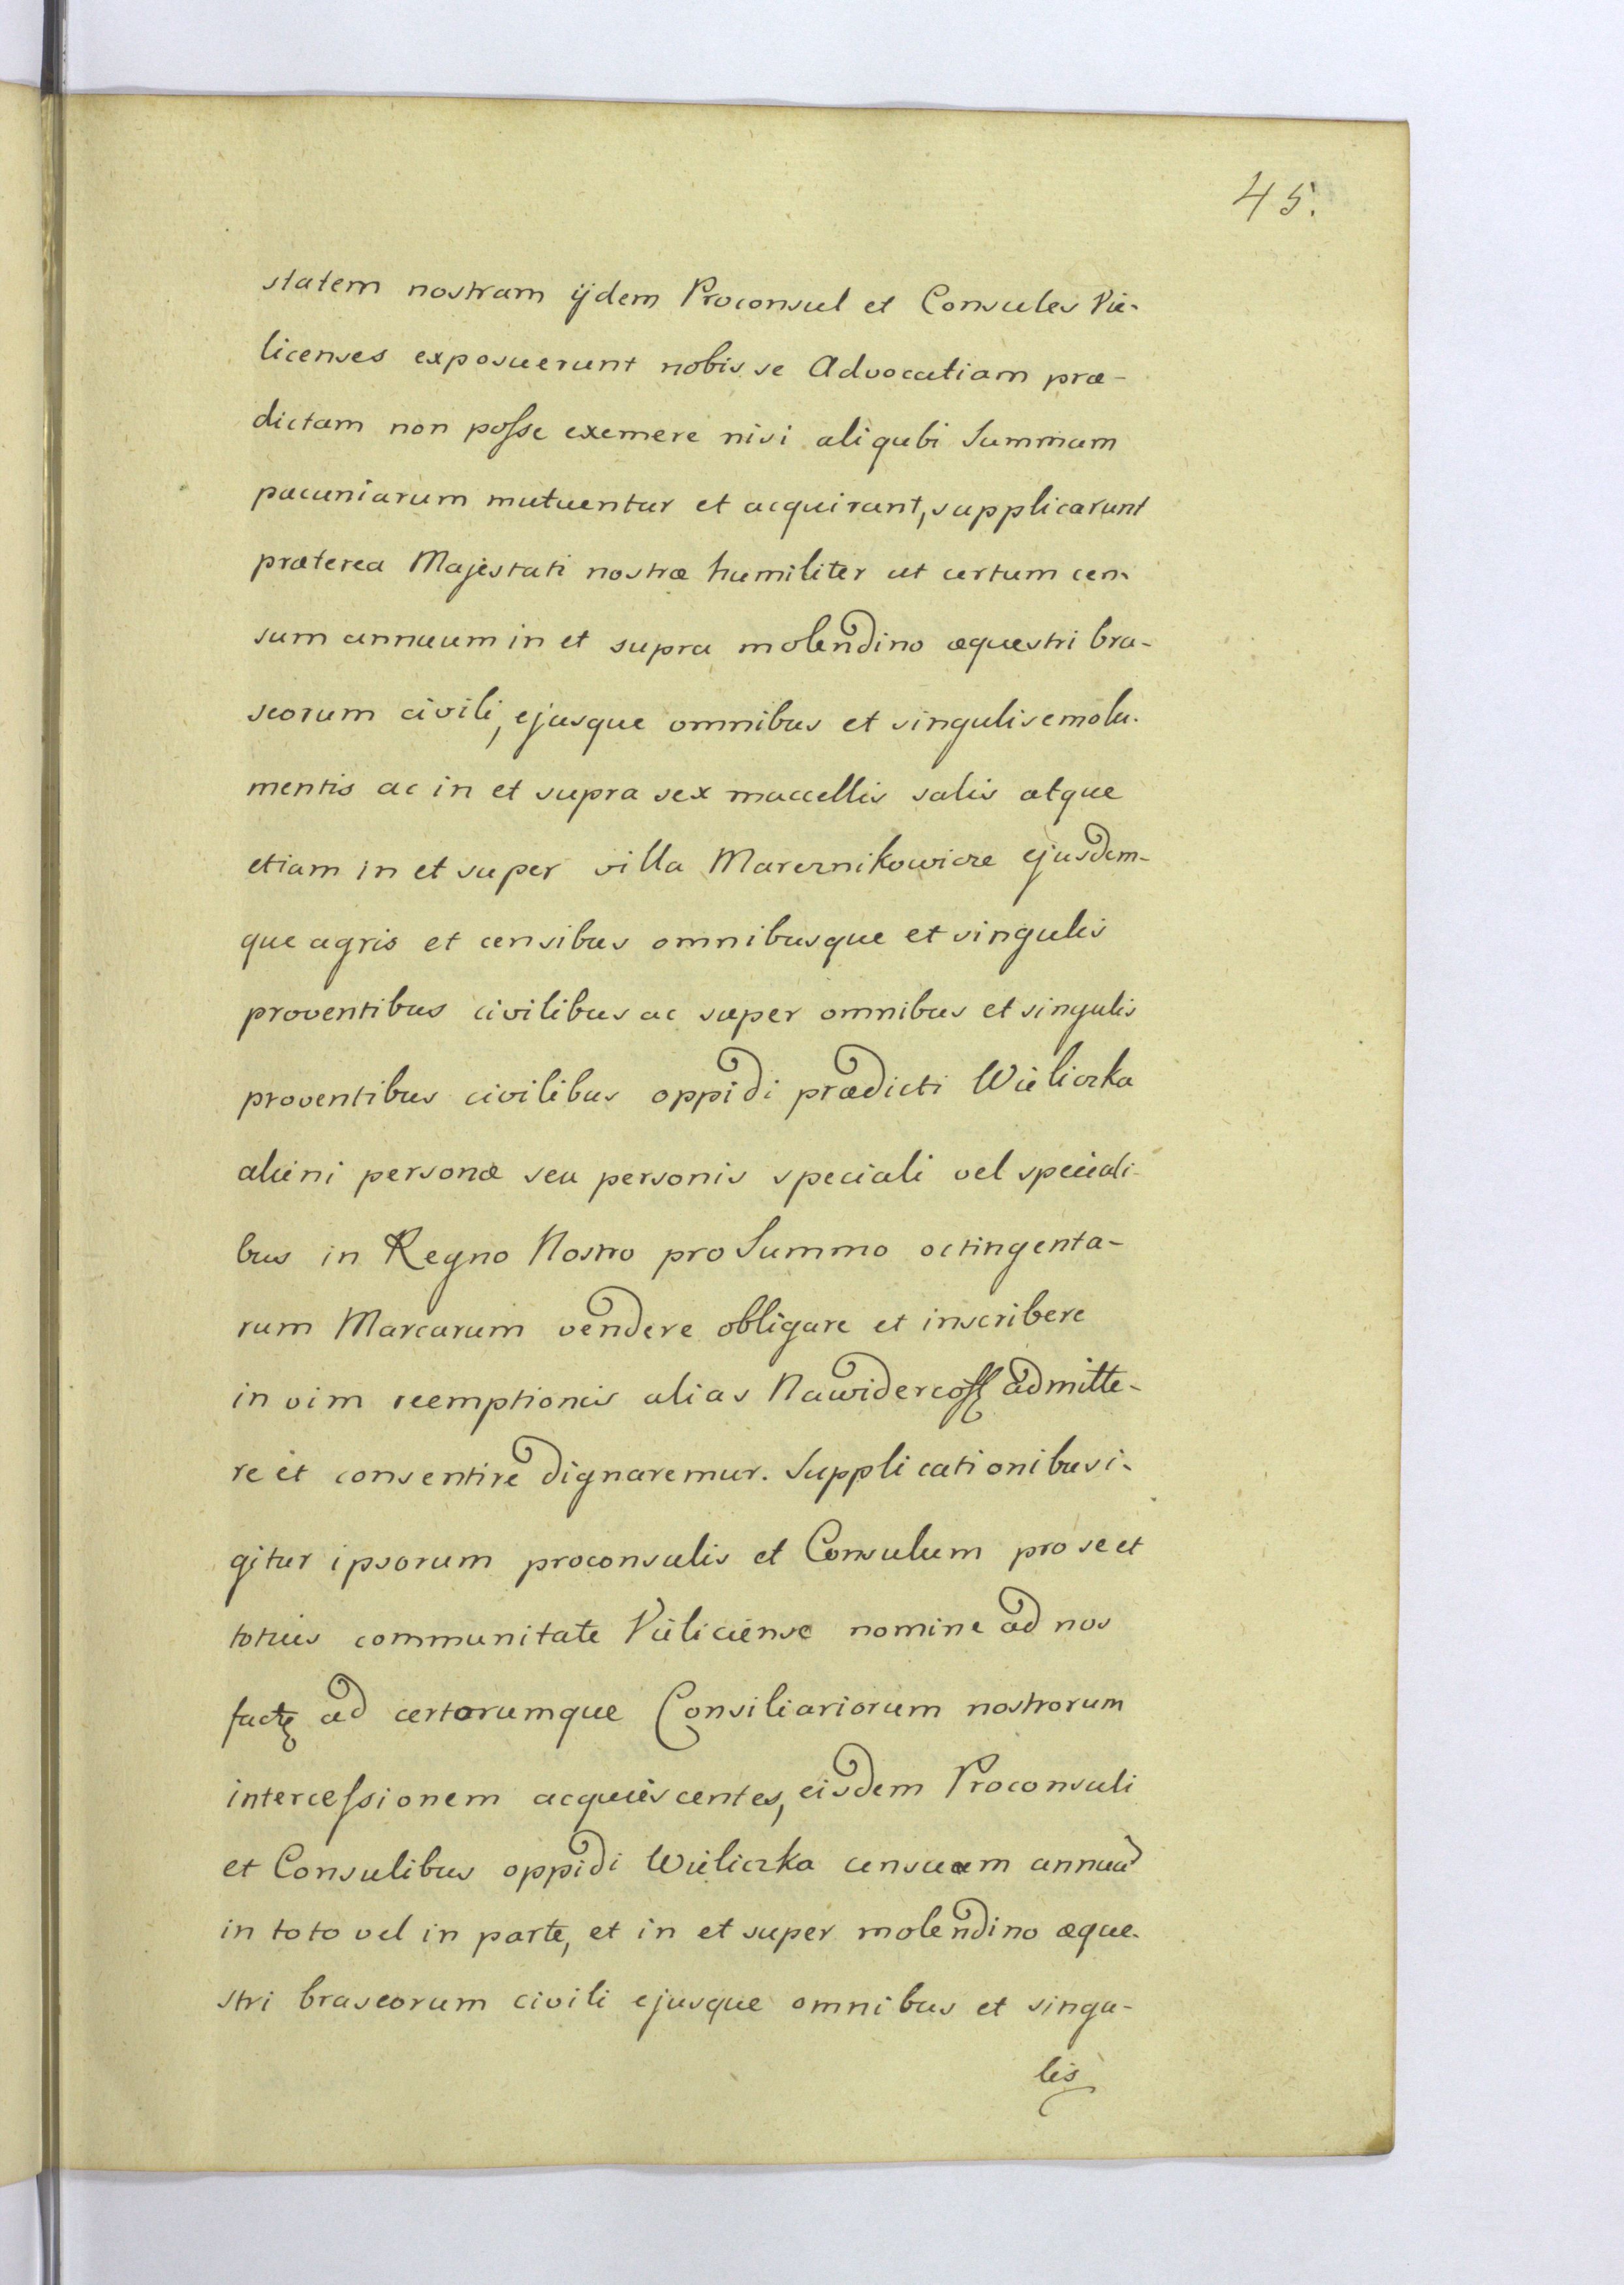 45.
statem nostram ijdem Proconsul et Consules Vie-
licenses exposuerunt nobis se Advocatiam præ-
dictam non posse exemere nisi aliqubi Summam
pæcuniarum mutuentur et acquirant, supplicarunt
præterea Majestati nostræ humiliter ut certum cen-
sum annuum in et supra molendino æquestri bra-
seorum civili, ejusque omnibus et singulis emolu-
mentis ac in et supra sex maccellis salis atque
etiam in et super villa Marcznikowicze ejusdem-
que agris et censibus omnibusque et singulis
proventibus civilibus ac super omnibus et singulis
proventibus civilibus oppidi prædicti Wieliczka
alieni personæ seu personis speciali vel speciali-
bus in Regno Nostro pro Summo octingenta-
rum Marcarum vendere obligare et inscribere
in vim reemptionis alias admitte-
re et consentire dignaremur. Supplicationibus i-
gitur ipsorum proconsulis et Consulum pro se et
totius communitate Vieliciense nomine ad nos
factę ad certorumque Consiliariorum nostrorum
intercessionem acquiescentes, eisdem Proconsuli
et Consulibus oppidi Wieliczka censuum annuū
in toto vel in parte, et in et super molendino æque-
stri braseorum civili ejusque omnibus et singu-
lis